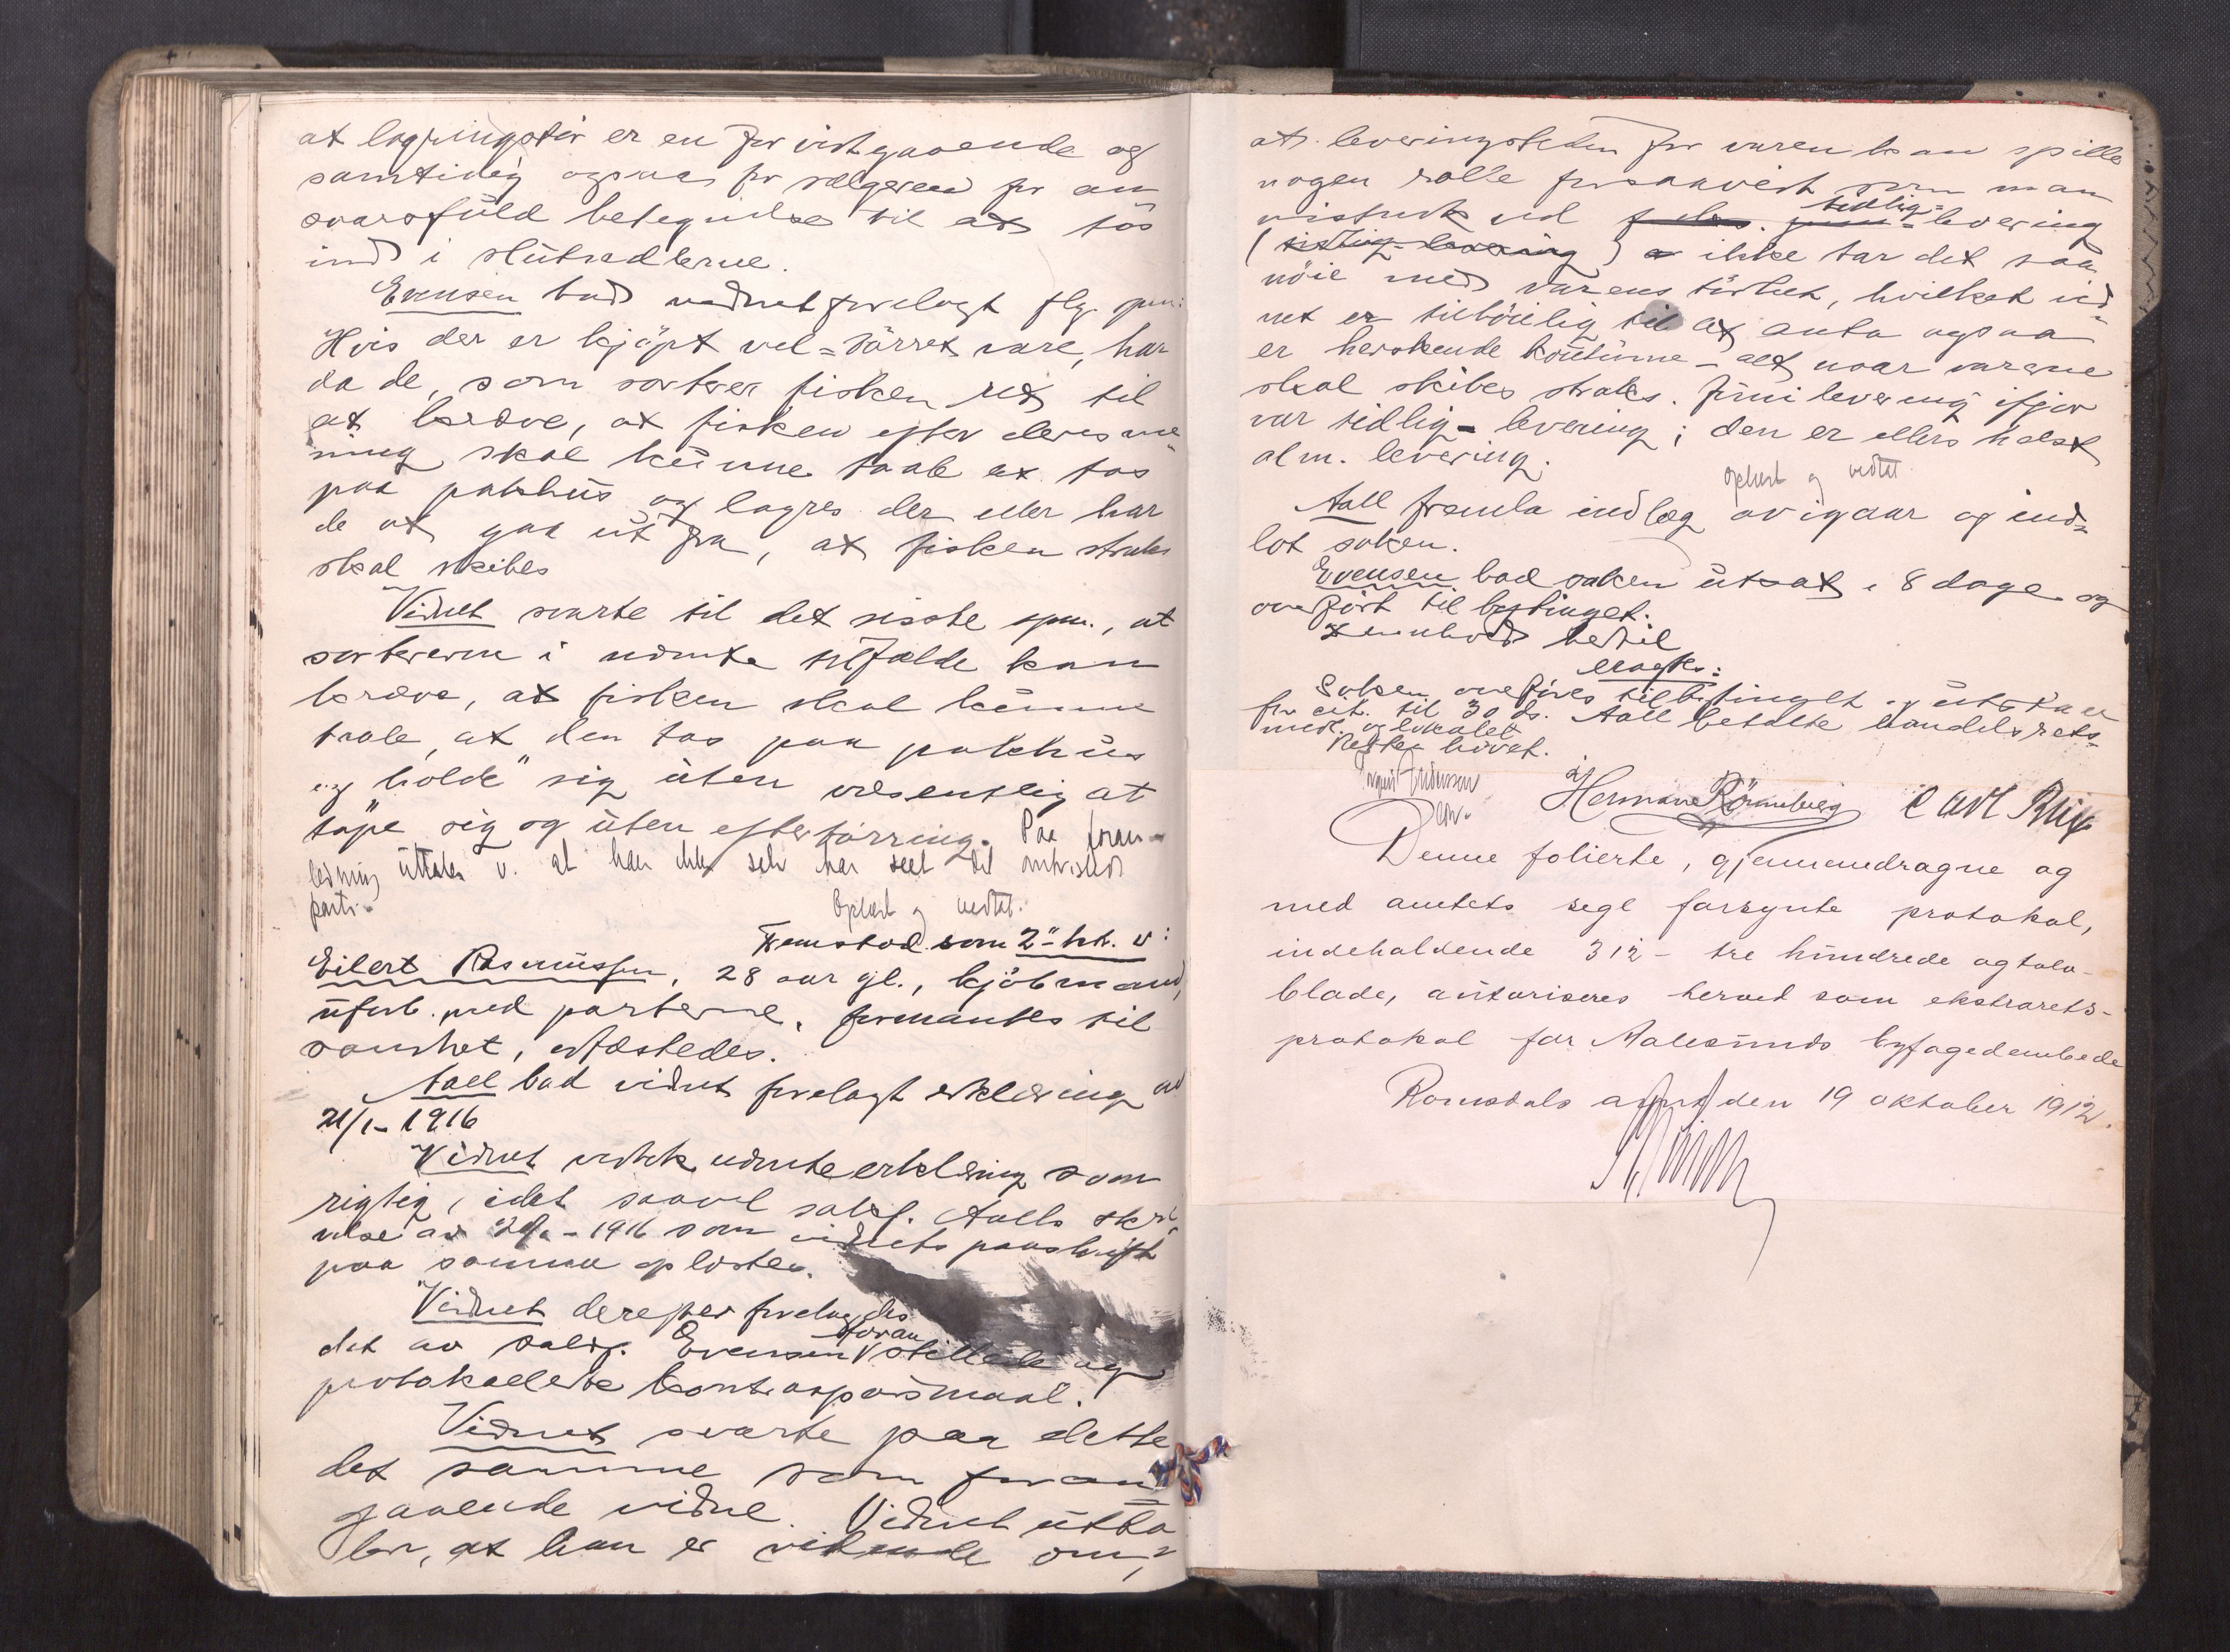 at lagringstør er en for vidtgaaende og
samtidig ogsaa for sælgeren for an
svarsfuld betegnelse til at tas
ind i slutsedlerne.
Evensen bad vidnet forelagt flg. spm:
Hvis der er kjøpt vel=tørret vare, har
da de, som sorterer fisken ret til
at kræve, at fisken efter deres me
ning skal kunne taale at tas
paa pakhus og lagres der eller har
de at gaa ut fra, at fisken straks
skal skibes
Vidnet svarte til det sisste spm., at
sorterererne i nævnte tilfælde kan
kræve, at fisken skal kunne
taale, at den tas paa pakhus
og "holde" sig uten væsentlig at
tape sig og uten eftertørring. Paa foran-
ledning uttaler v. at han ikke selv har seet det omtvistede
parti.
Oplæst og vedtat.
Fremstod som 2det hk. v:
Eilert Rasmussen, 28 aar gl., kjøbmand,
uforb. med parterne, formantes til
sandhet, edfæstedes.
Aall bad vidnet forelagt erklæring av
21/1-1916
Vidnet vedtok nævnte erklæring som
rigtig, idet saavel sakf. Aalls skri
velse av 20/1-1916 som vidnets paaskrift
paa samme oplæstes.
Vidnet derefter forelagdes
det av sakf. Evensen foran stillede og
protokollerte kontraspørsmaal.
Vidnet svarte paa dette
det samme som foran
gaaende vidne. Vidnet utta
ler, at han er vidende om,
at leveringstiden for varen kan spille
nogen rolle forsaavidt som man
vistnok ved tidlig-levering
(tidlig levering) ikke tar det saa
nøie med varens tørhet, hvilket vid
net er tilbøielig til at anta ogsaa
er herskende koutume - alt naar varene
skal skibes straks. Juni levering ifjor
var tidlig-levering; den er ellers helst
alm. levering.
Oplæst og vedtat.
Aall fremla indlæg av igaar og ind-
lot saken.
Evensen bad saken utsat i 8 dage og
overført til bytinget.
I henhold hertil
eragtes:
Saken overføres til bytinget og utstaar
for cit. til 30 ds. Aall betalte handelsrets-
medl. og lokalet.
Retten hævet.
Andersen Herman Rönneberg Carl Riise
Denne folierte, gjennemdragne og
med amtets segl forsynte protokol,
indeholdende 312 - tre hundrede og tolv-
blade, autoriseres herved som ekstrarets-
protokol for Aalesunds byfogedembede
Romsdals amt den 19 oktober 1912.